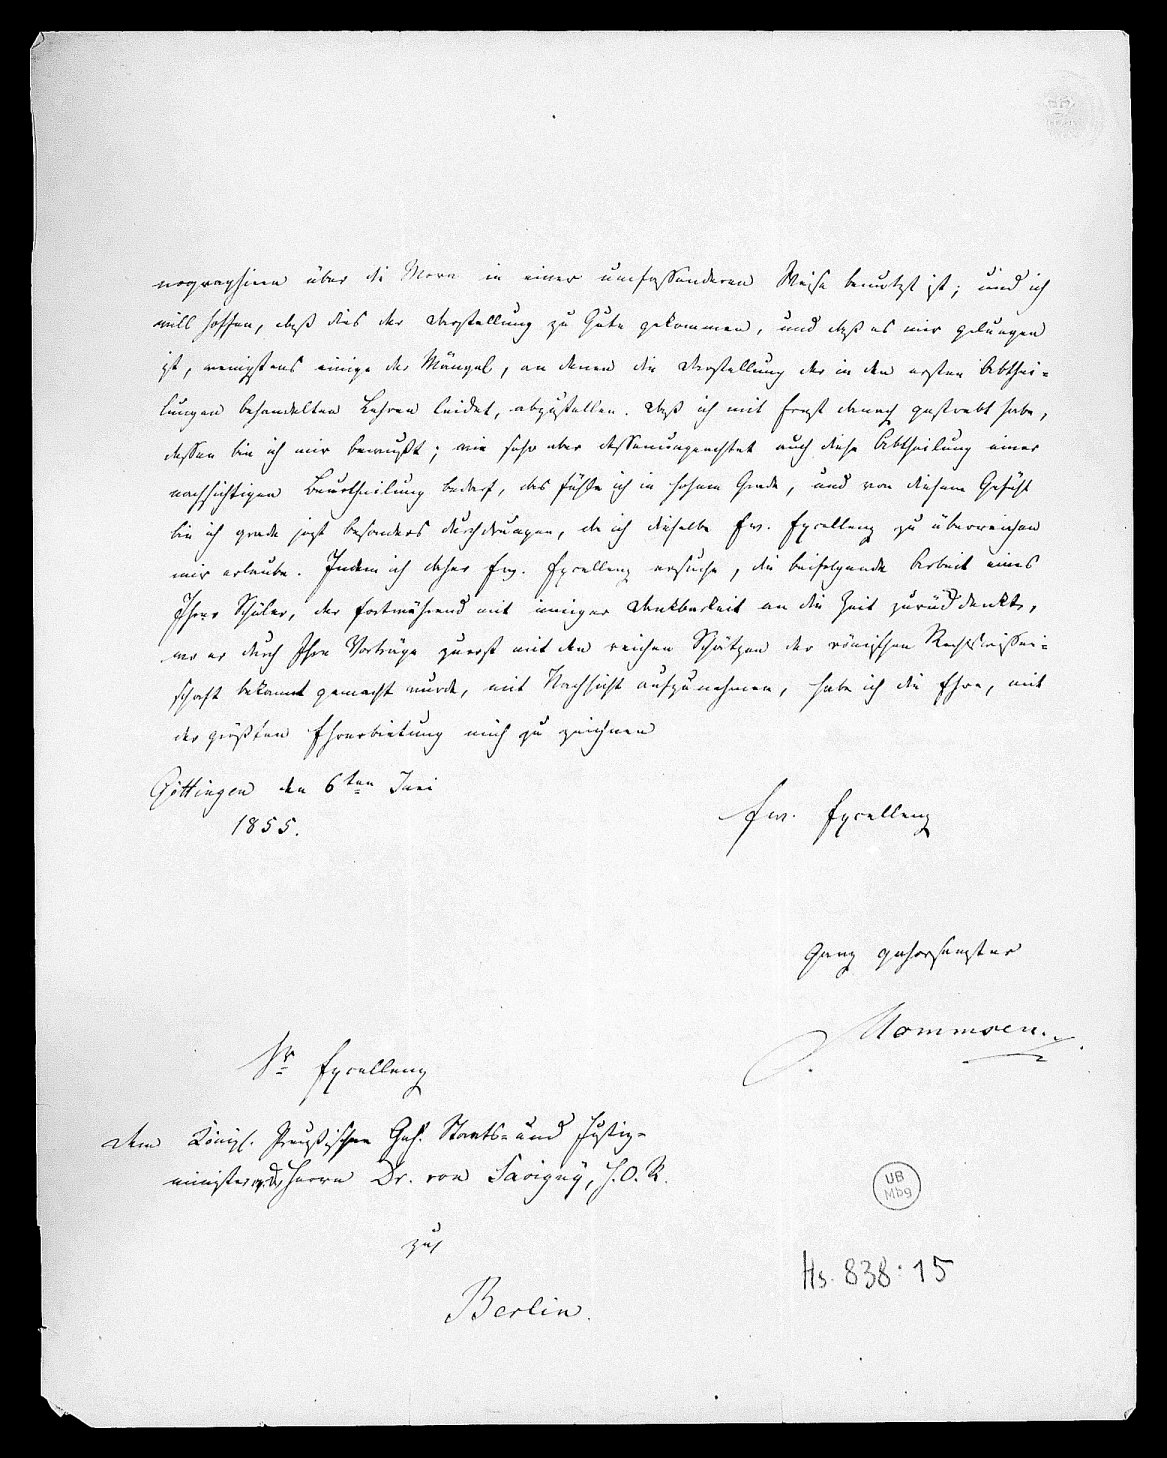 nographieen über die Mora in einer umfassenderen Weise benutzt ist; und ich
will hoffen, daß dies der Darstellung zu Gute gekommen, und daß es mir gelungen
ist, wenigstens einige der Mängel, an denen die Darstellung der in den ersten Abthei-
lungen behandelten Lehren leidet, abzustellen. Daß ich mit Ernst danach gestrebt habe,
dessen bin ich mir bewußt; wie sehr aber dessenungeachtet auch diese Abtheilung einer
nachsichtigen Beurtheilung bedarf, das fühle ich in hohem Grade, und von diesem Gefühl
bin ich grade jetzt besonders durchdrungen, da ich dieselbe Ew. Excellenz zu überreichen
mir erlaube. Indem ich daher Ew. Excellenz ersuche, die beifolgende Arbeit eines
Ihrer Schüler, der fortwährend mit inniger Dankbarkeit an die Zeit zurückdenkt,
wo er durch Ihre Vorträge zuerst mit den reichen Schätzen der römischen Rechtswissen-
schaft bekannt gemacht wurde, mit Nachsicht aufzunehmen, habe ich die Ehre, mit
der größten Ehrerbietung mich zu zeichnen
Göttingen den 6ten Juni
1855.
Ew. Excellenz
Ganz gehorsamster
Mommsen.
Sr Excellenz
dem Königl. Preußischen Geh. Staats- und Justiz-
minister a. D. Herrn Dr. von Savigny, H.O.R.
zu
Berlin.
UB
Mbg
Hs. 838:15